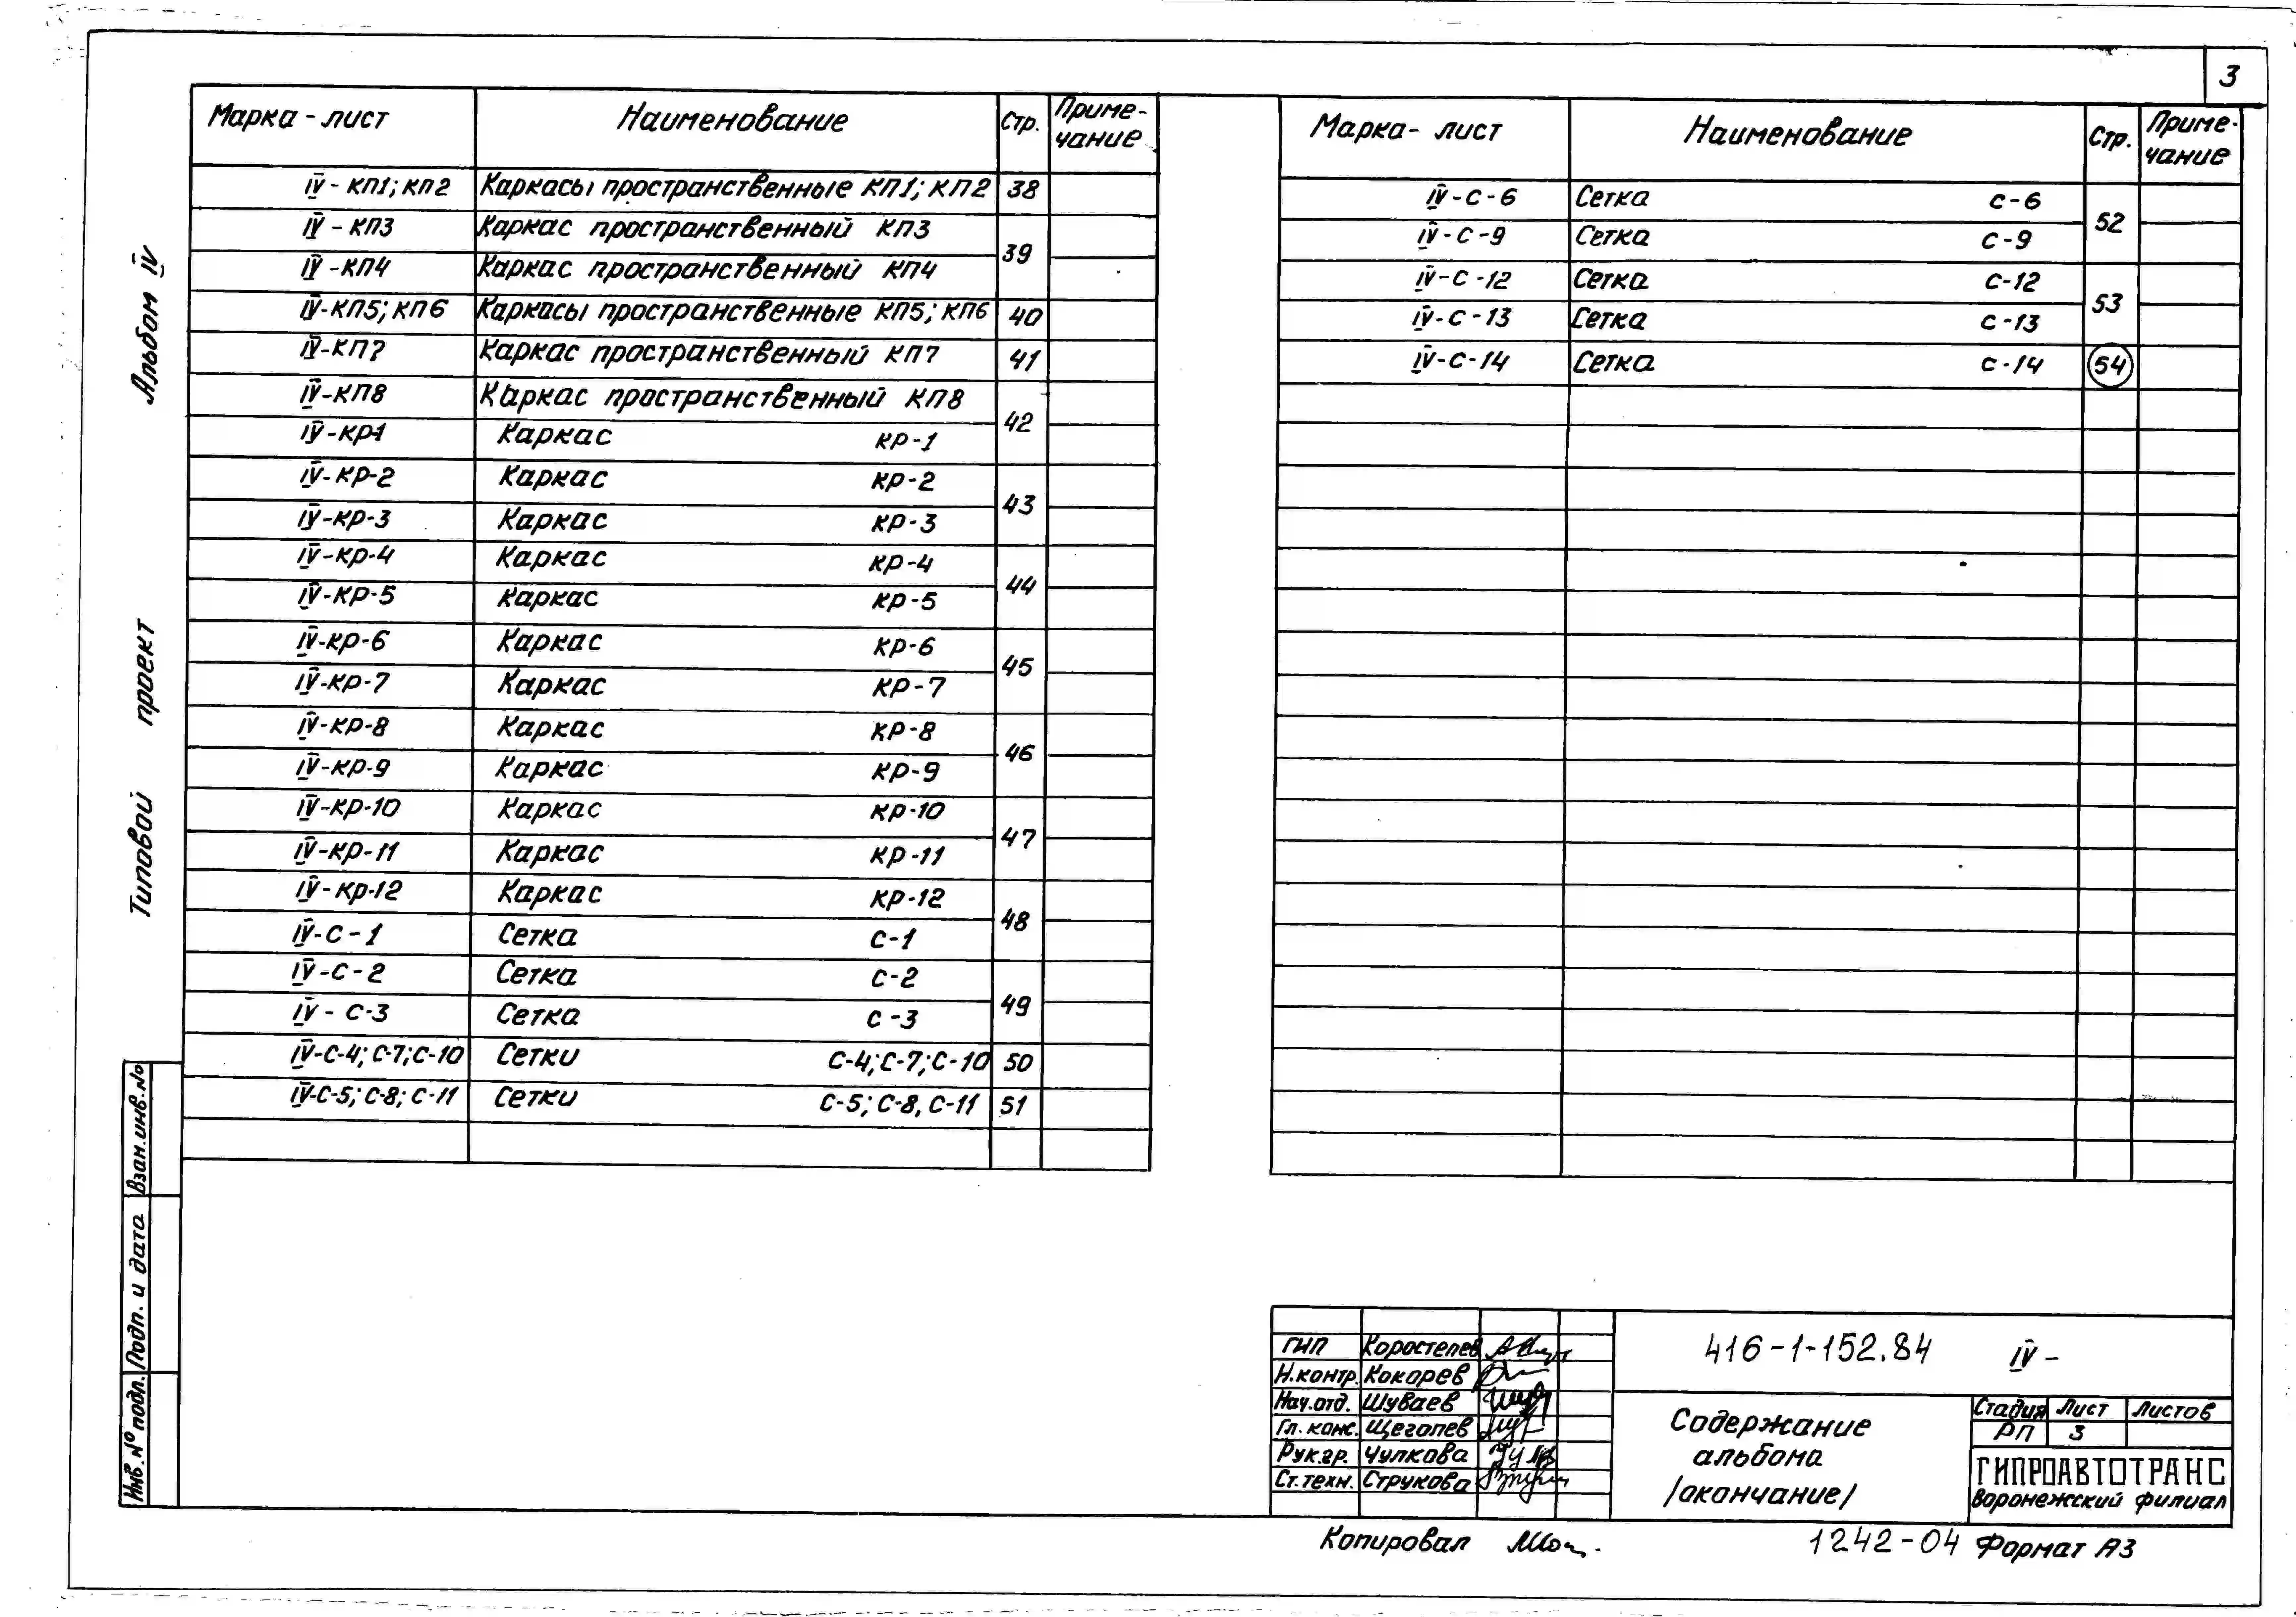 3
Марка - лист Наименование Стр. Приме-чание
IV - КП1; КП2 Каркасы пространственные КП1; КП2 38
IV - КП3 Каркас пространственный КП3 39
IV - КП4 Каркас пространственный КП4
IV-КП5; КП6 Каркасы пространственные КП5; КП6 40
IV-КП7 Каркас пространственный КП7 41
IV-КП8 Каркас пространственный КП8 42
IV-КР1 Каркас КР-1
IV-КР-2 Каркас КР-2 43
IV-КР-3 Каркас КР-3
IV-КР-4 Каркас КР-4 44
IV-КР-5 Каркас КР-5
IV-КР-6 Каркас КР-6 45
IV-КР-7 Каркас КР-7
IV-КР-8 Каркас КР-8 46
IV-КР-9 Каркас КР-9
IV-КР-10 Каркас КР-10 47
IV-КР-11 Каркас КР-11
IV-КР-12 Каркас КР-12 48
IV-С-1 Сетка С-1
IV-С-2 Сетка С-2 49
IV - С-3 Сетка С-3
IV-С-4; С-7; С-10 Сетки С-4; С-7; С-10 50
IV-С-5; С-8; С-11 Сетки С-5; С-8, С-11 51
Марка - лист Наименование Стр. Приме-чание
IV-С-6 Сетка С-6 52
IV-С-9 Сетка С-9
IV-С-12 Сетка С-12 53
IV-С-13 Сетка С-13
IV-С-14 Сетка С-14 54
Типовой проект Альбом IV
Взан.инв.№
Подп. и дата
Инв.№подл.
ГИП Коростелев
Н.контр. Кокорев
Нач.отд. Шуваев
Гл. конс. Щеголев
Рук.гр. Чулкова
Ст.техн. Струкова
416-1-152.84 IV -
Содержание
альбома
/окончание/
Стадия Лист Листов
РП 3
ГИПРОАВТОТРАНС
Воронежский филиал
Копировал
1242-04 Формат А3